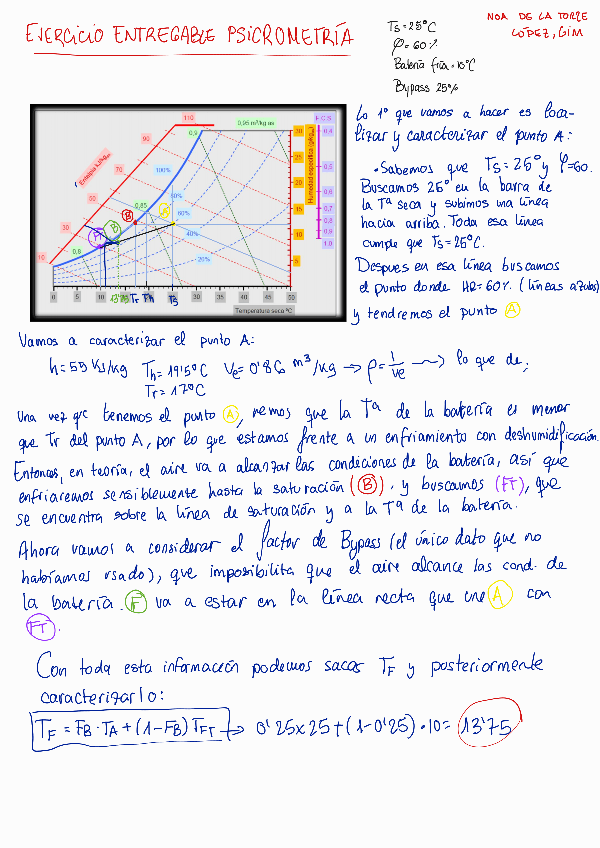 EJERCICIO ENTREGABLE PSICROMETRÍA
Ts = 25°C
φ = 60%
Batería fría = 10°C
Bypass 25%
NOA DE LA TORRE
LÓPEZ, GIM
Lo 1º que vamos a hacer es loca-
lizar y caracterizar el punto A:
• Sabemos que Ts = 25° y φ=60.
Buscamos 25° en la barra de
la Tª seca y subimos una línea
hacia arriba. Toda esa línea
cumple que Ts = 25°C.
Despues en esa línea buscamos
el punto donde HR=60% (líneas azules)
y tendremos el punto A
110
0,95 m³/kg as
F C S
90
0,9
70
100%
Entalpia kJ/kg
50
0,85
80%
60%
40%
20%
30
0,8
FT
F
B
A
30
25
20
15
10
5
Humedad específica (g/kg)
0,4
0,5
0,6
0,7
0,8
0,9
1,0
0 5 10 15 Tr Th Ts 30 35 40 45 50
Temperatura seca ºC
Vamos a caracterizar el punto A:
h = 55 KJ/kg Th = 19'5°C Ve = 0'86 m³/kg → ρ = 1/ve ⟿ lo que de;
Tr = 17°C
Una vez que tenemos el punto A, vemos que la Tª de la batería es menor
que Tr del punto A, por lo que estamos frente a un enfriamiento con deshumidificación.
Entonces, en teoría, el aire va a alcanzar las condiciones de la batería, así que
enfriaremos sensiblemente hasta la saturación (B). y buscamos (FT), que
se encuentra sobre la línea de saturación y a la Tª de la batería.
Ahora vamos a considerar el factor de Bypass (el único dato que no
habíamos usado), que imposibilita que el aire alcance las cond. de
la batería. F va a estar en la línea recta que une A con
FT.
Con toda esta información podemos sacar TF y posteriormente
caracterizarlo:
TF = FB · TA + (1 - FB) TFT → 0'25 x 25 + (1 - 0'25) · 10 = 13'75